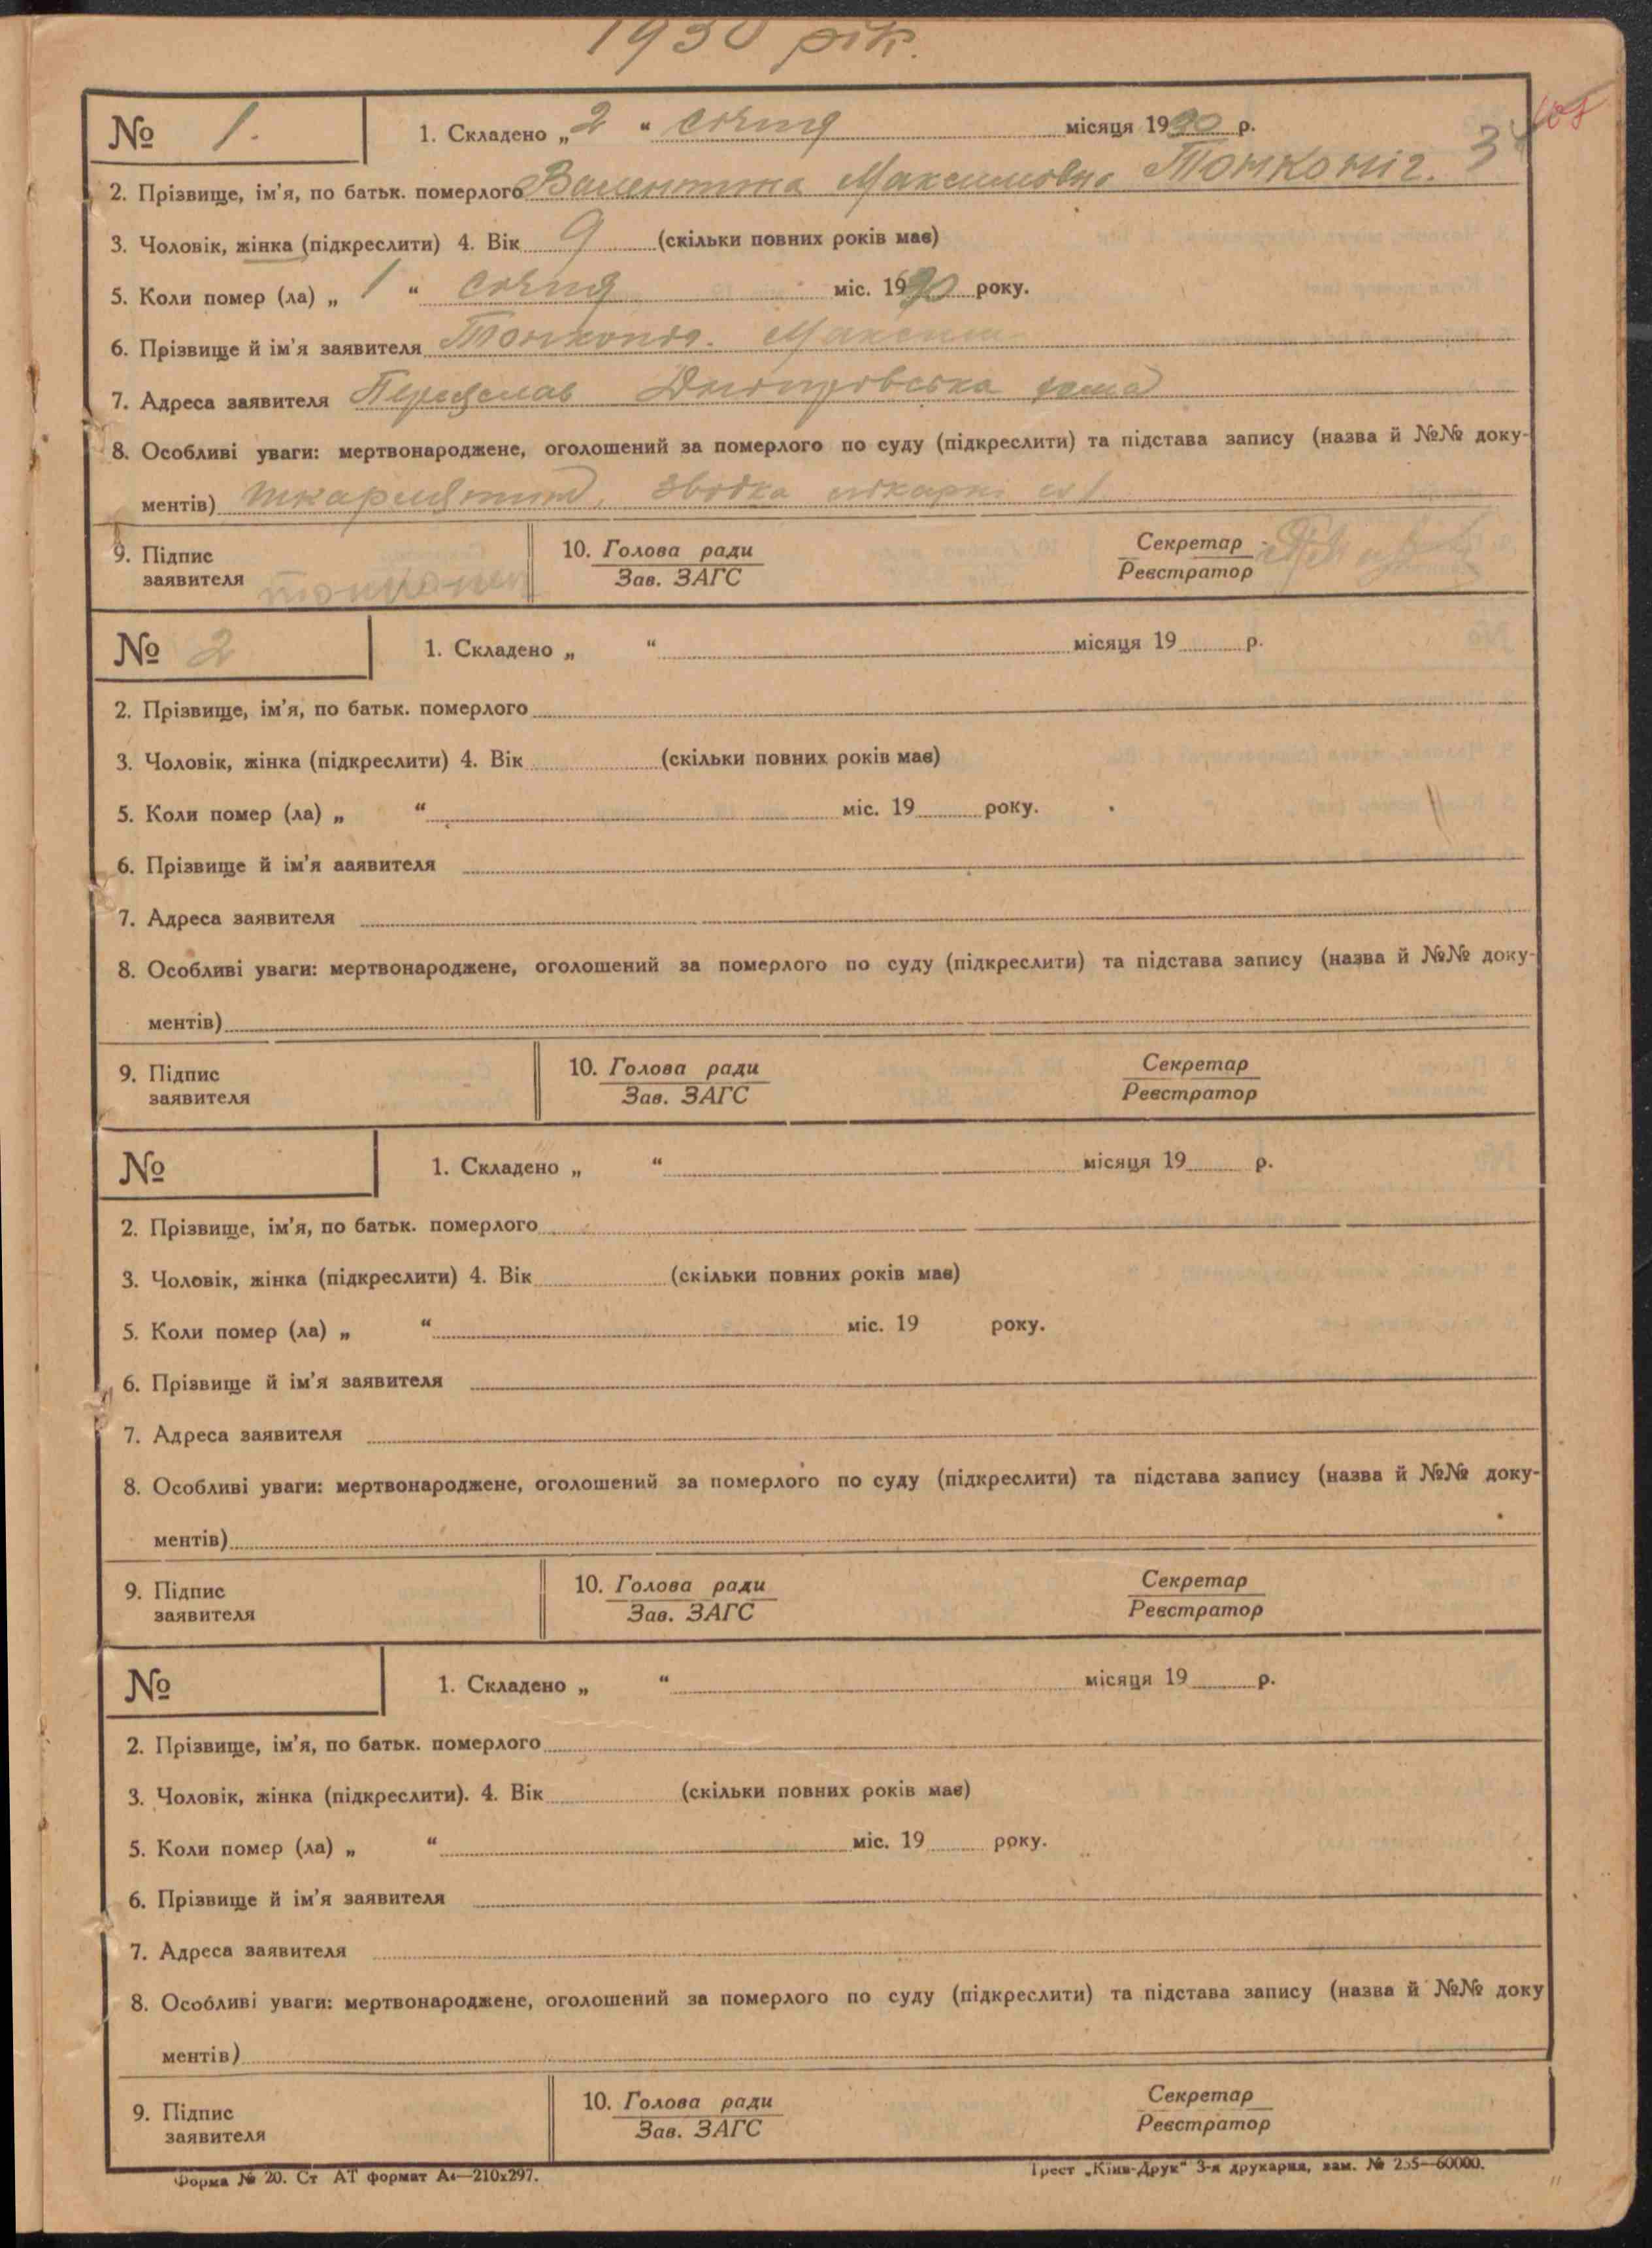 1930 рік.
№ 1. 1. Складено „ 2 “ січня місяця 1930 р.
2. Прізвище, ім'я, по батьк. померлого Валентина Максимовна Тонконіг. 34
3. Чоловік, жінка (підкреслити) 4. Вік 9 (скільки повних років має)
5. Коли помер (ла) „ 1 “ січня міс. 1930 року.
6. Прізвище й ім'я заявителя Тонконіг. Максим
7. Адреса заявителя Переяслав
8. Особливі уваги: мертвонароджене, оголошений за померлого по суду (підкреслити) та підстава запису (назва й №№ доку-
ментів) шкарлятина,
9. Підпис 10. Голова ради Секретар
заявителя Зав. ЗАГС Реєстратор
№ 2 1. Складено „ “ місяця 19 р.
2. Прізвище, ім'я, по батьк. померлого
3. Чоловік, жінка (підкреслити) 4. Вік (скільки повних років має)
5. Коли помер (ла) „ “ міс. 19 року.
6. Прізвище й ім'я ааявителя
7. Адреса заявителя
8. Особливі уваги: мертвонароджене, оголошений за померлого по суду (підкреслити) та підстава запису (назва й №№ доку-
ментів)
9. Підпис 10. Голова ради Секретар
заявителя Зав. ЗАГС Реєстратор
№ 1. Складено „ “ місяця 19 р.
2. Прізвище, ім'я, по батьк. померлого
3. Чоловік, жінка (підкреслити) 4. Вік (скільки повних років має)
5. Коли помер (ла) „ “ міс. 19 року.
6. Прізвище й ім'я заявителя
7. Адреса заявителя
8. Особливі уваги: мертвонароджене, оголошений за померлого по суду (підкреслити) та підстава запису (назва й №№ доку-
ментів)
9. Підпис 10. Голова ради Секретар
заявителя Зав. ЗАГС Реєстратор
№ 1. Складено „ “ місяця 19 р.
2. Прізвище, ім'я, по батьк. померлого
3. Чоловік, жінка (підкреслити). 4. Вік (скільки повних років має)
5. Коли помер (ла) „ “ міс. 19 року.
6. Прізвище й ім'я заявителя
7. Адреса заявителя
8. Особливі уваги: мертвонароджене, оголошений за померлого по суду (підкреслити) та підстава запису (назва й №№ доку
ментів)
9. Підпис 10. Голова ради Секретар
заявителя Зав. ЗАГС Реєстратор
Форма № 20. Ст АТ формат А4—210х297. Трест „Київ-Друк“ 3-я друкарня, зам. № 255—60000.